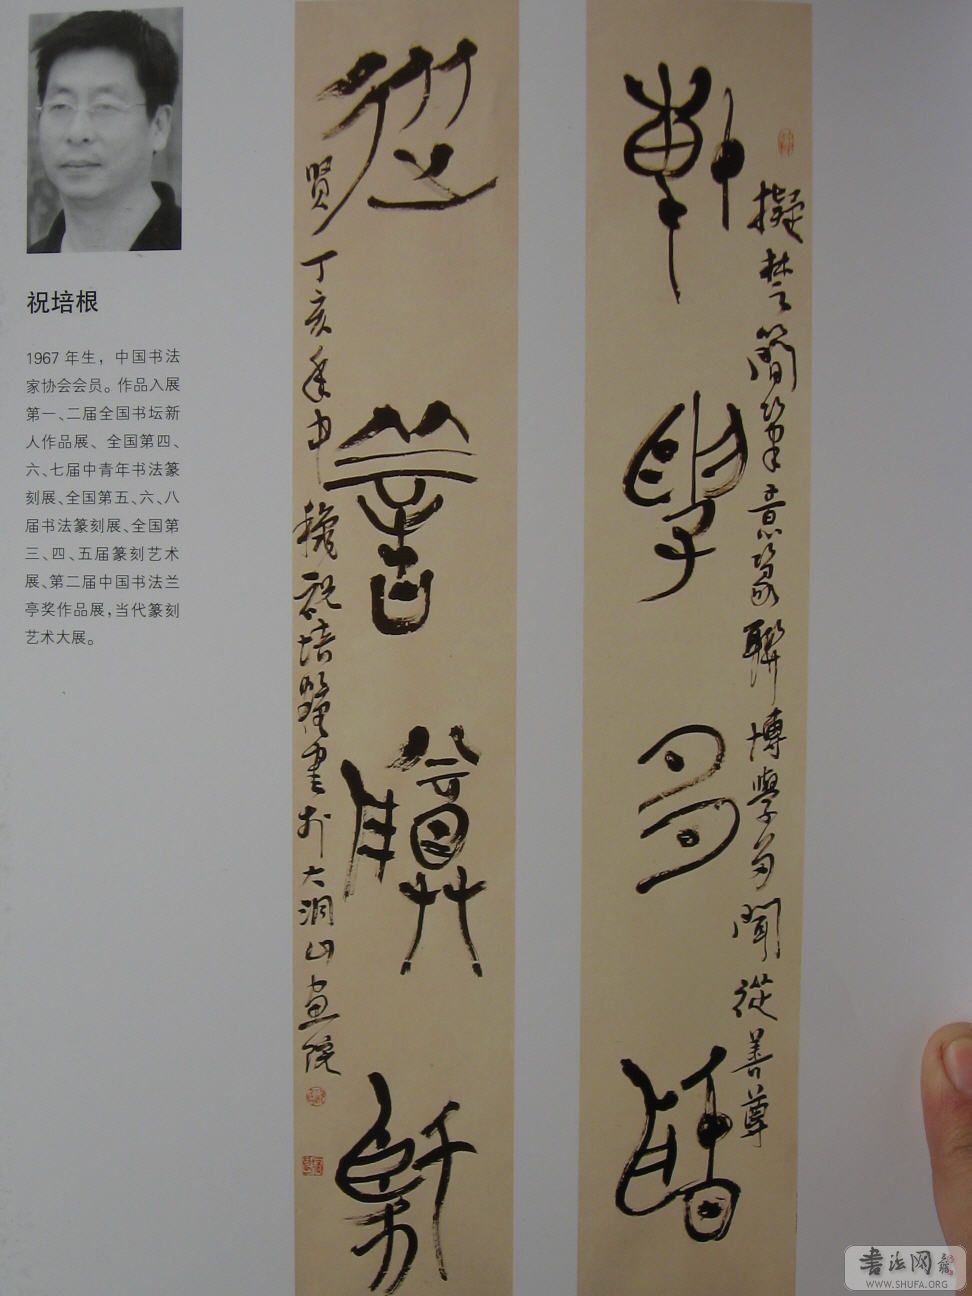 祝培根
1967年生，中国书法
家协会会员。作品入展
第一、二届全国书坛新
人作品展、全国第四、
六、七届中青年书法篆
刻展、全国第五、六、八
届书法篆刻展、全国第
三、四、五届篆刻艺术
展、第二届中国书法兰
亭奖作品展，当代篆刻
艺术大展。
博學多聞
擬楚簡筆意篆聯博學多聞從善尊
從善尊賢
賢丁亥年中秋祝培根書於大洞山畫院
书法网
WWW.SHUFA.ORG